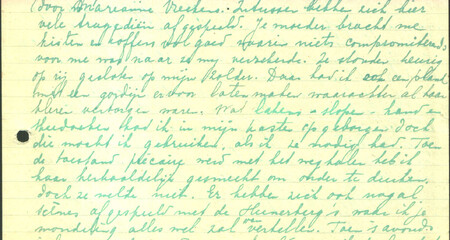 door Marianne Vreekens. Intussen hebben zich hier
vele tragediën afgespeeld. Je moeder bracht me
kisten en koffers vol goed waarin niets compromitteerends
voor me was naar ze mij verzekerde. Ze stonden keurig
op rij gesloten op mijn zolder. Daar had ik ook een plank
met een gordijn ervoor laten maken waarachter al haar
kleren verborgen waren. Wat lakens - slopen - handen
theedoeken had ik in mijn kasten opgeborgen doch
die mocht ik gebruiken, als ik ze noodig had. Toen
de toestand précaire werd met het weghalen heb ik
haar herhaaldelijk gesmeekt om onder te duiken,
doch ze wilde niet. Er hebben zich ook nogal
scènes afgespeeld met de Heinerberg's waar ik je
mondeling alles wel zal vertellen. Toen 's avonds